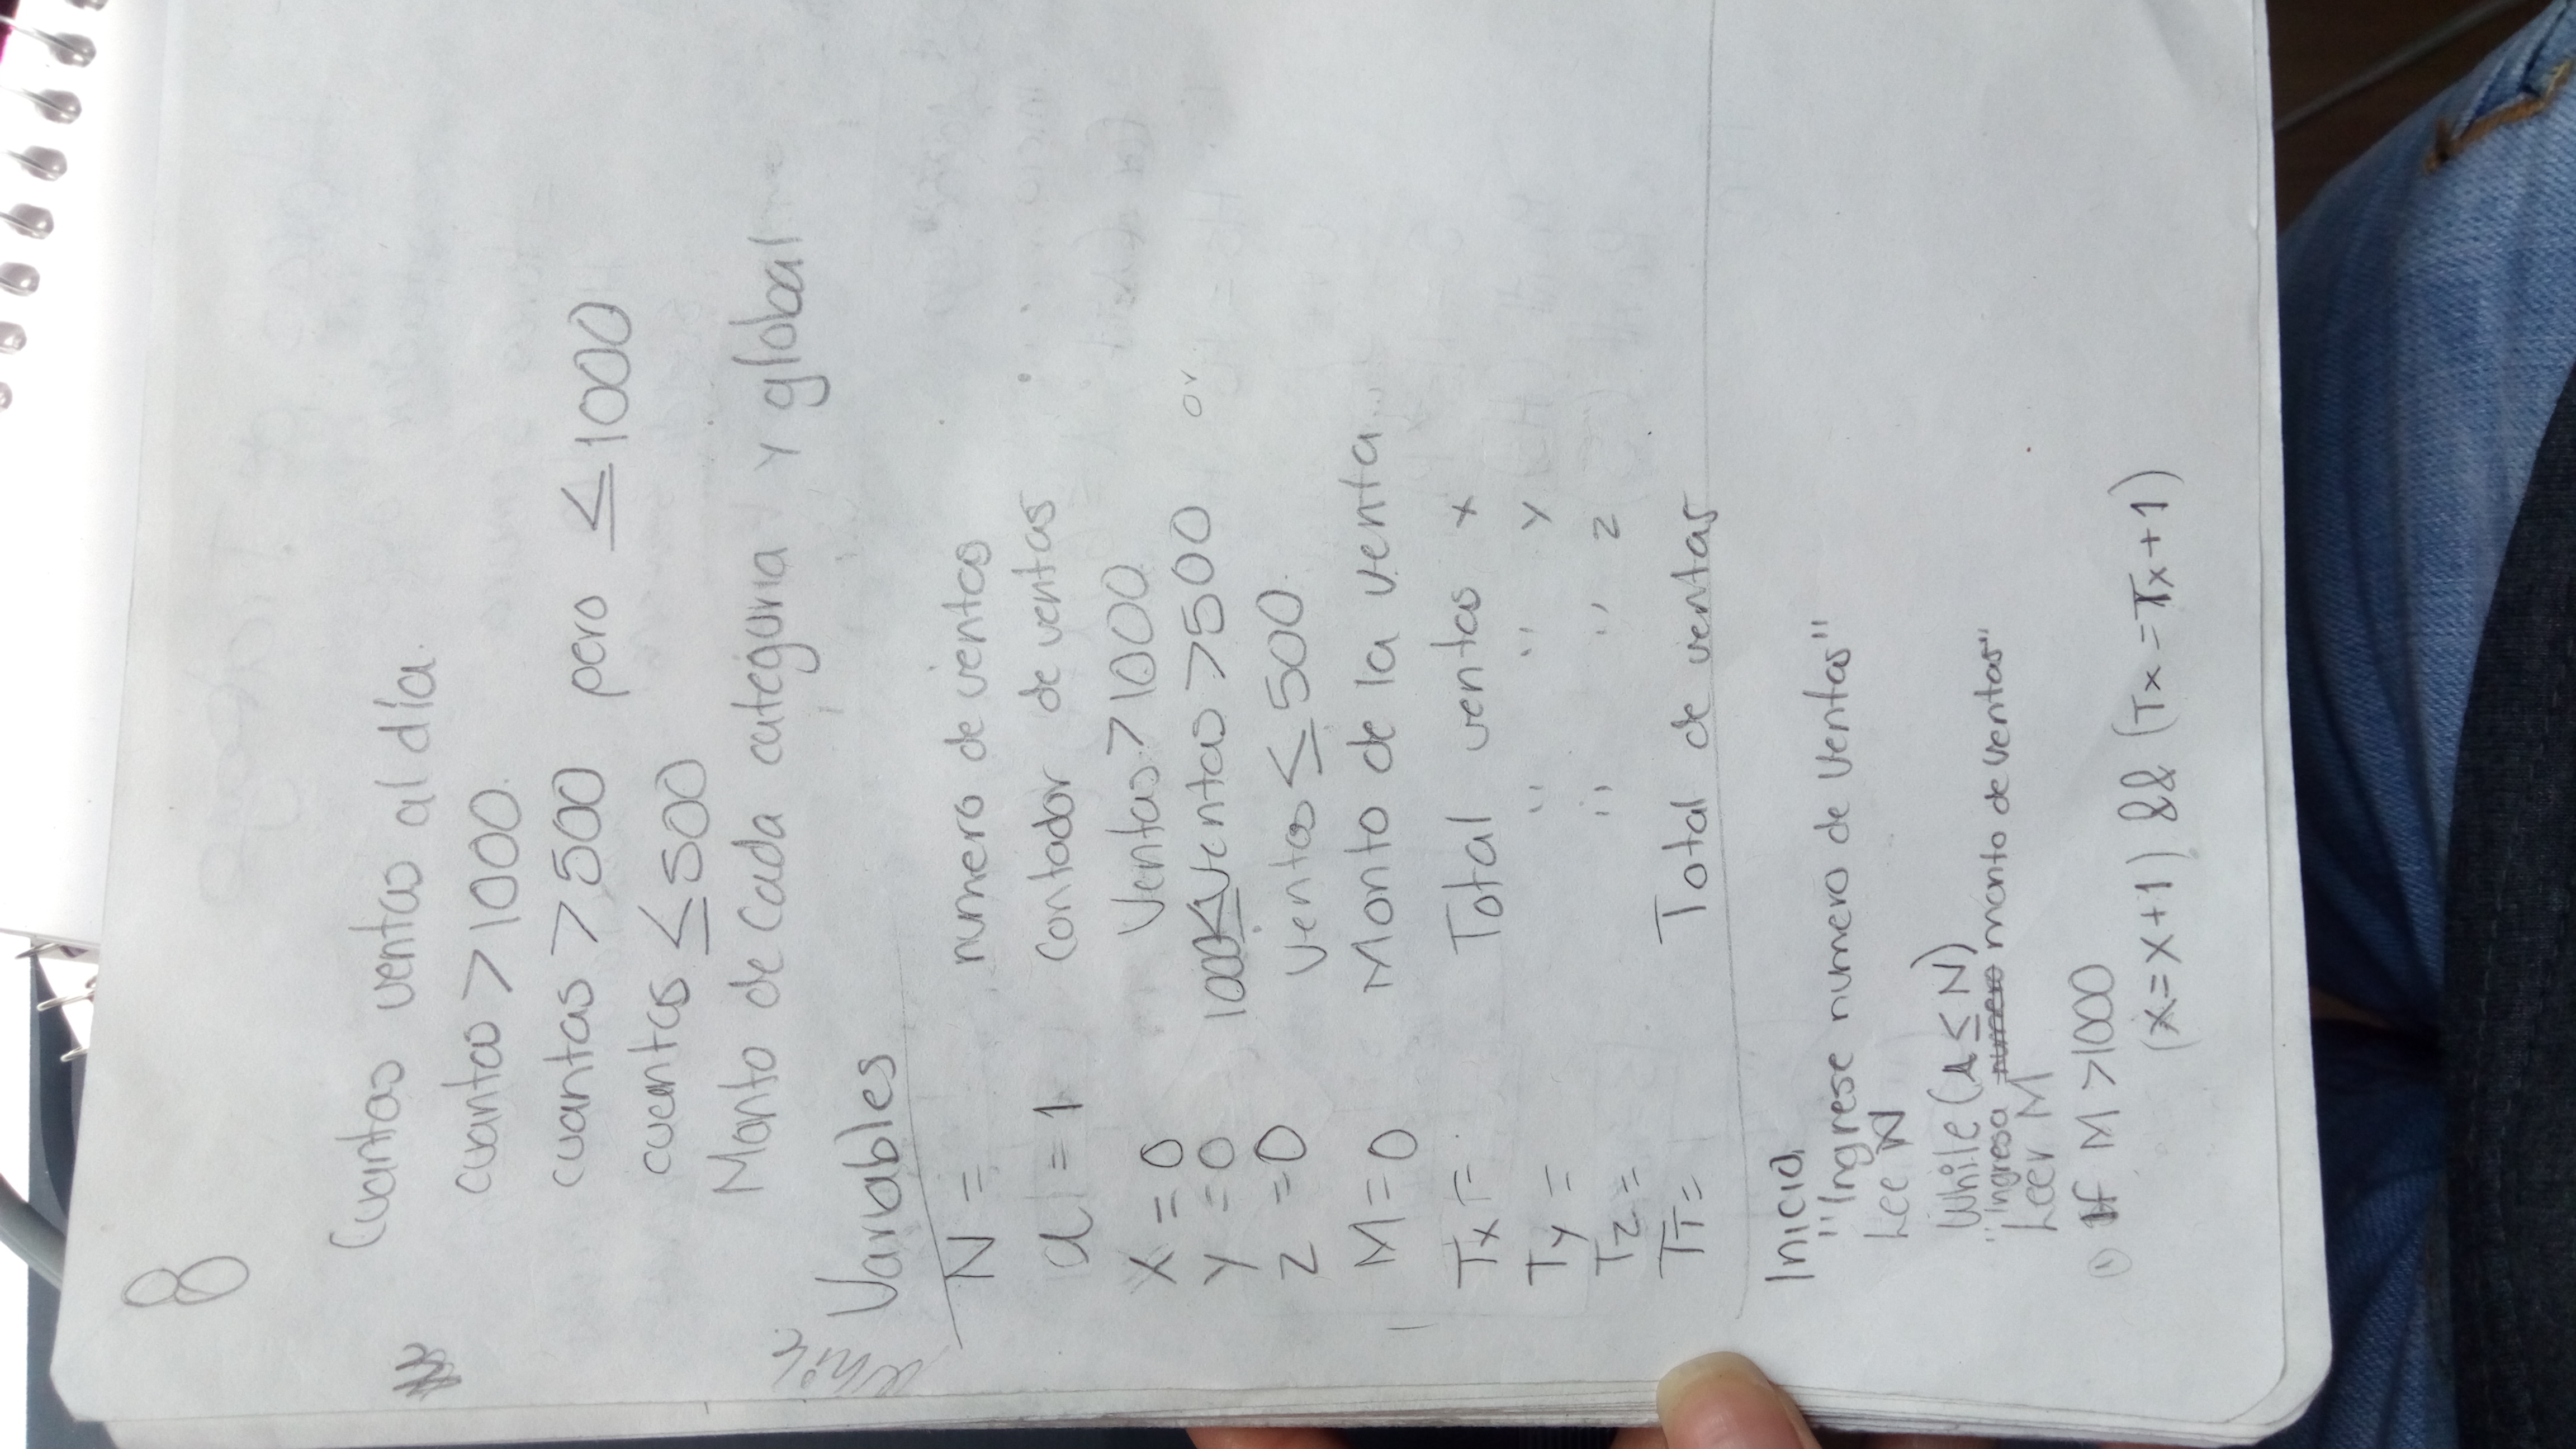 8
Cuantas ventas al día.
cuantas > 1000.
cuantas > 500 pero ≤ 1000
cuantas ≤ 500
Monto de cada categoria y global
Variables
N = numero de ventas
a = 1 contador de ventas
x = 0 Ventas > 1000.
y = 0 1000 ≤ Ventas > 500 or
z = 0 Ventas ≤ 500.
M = 0 Monto de la venta
Tx = Total ventas x
Ty = " " y
Tz = " " z
TT = Total de ventas
Inicio
"Ingrese numero de ventas"
Lee N
While (a ≤ N)
"Ingresa numero monto de ventas"
Leer M
① If M > 1000
(x = x + 1) && (Tx = Tx + 1)